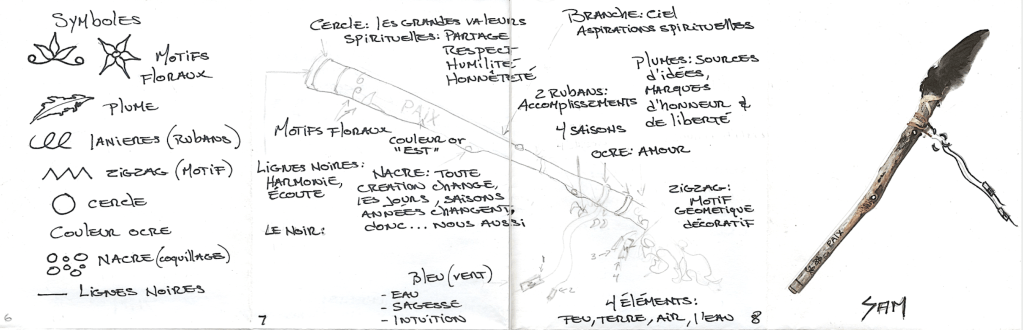 SYMBOLES
MOTIFS
FLORAUX
PLUME
LANIERES (RUBANS)
ZIGZAG (MOTIF)
CERCLE
COULEUR OCRE
NACRE (COQUILLAGE)
LIGNES NOIRES
6
CERCLE: LES GRANDES VALEURS
SPIRITUELLES: PARTAGE
RESPECT
HUMILITÉ
HONNÊTETÉ
PAIX
MOTIFS FLORAUX
COULEUR OR
"EST"
LIGNES NOIRES:
HARMONIE,
ÉCOUTE
NACRE: TOUTE
CREATION CHANGE,
LES JOURS, SAISONS
ANNEES CHANGENT,
DONC... NOUS AUSSI
LE NOIR:
BLEU (VERT)
- EAU
- SAGESSE
- INTUITION
7
BRANCHE: CIEL
ASPIRATIONS SPIRITUELLES
PLUMES: SOURCES
D'IDÉES,
MARQUES
D'HONNEUR &
DE LIBERTÉ
2 RUBANS:
ACCOMPLISSEMENTS
4 SAISONS
OCRE: AMOUR
ZIGZAG:
MOTIF
GEOMETIQUE
DÉCORATIF
3
4
4 ÉLÉMENTS:
FEU, TERRE, AIR, L'EAU
8
PAIX
SAM